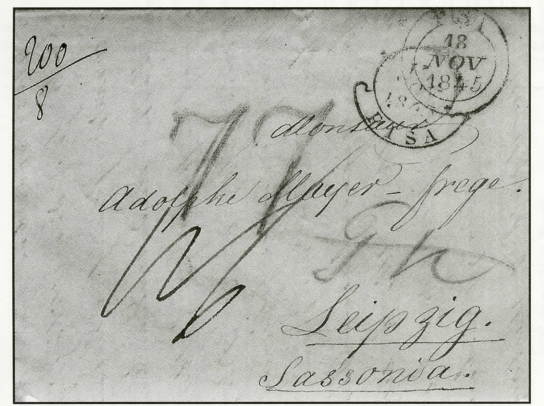 200
8
PISA
18
NOV
1845
PISA
Monsieur
Adolphe Mayer-frege.
77
Leipzig.
Sassonia.